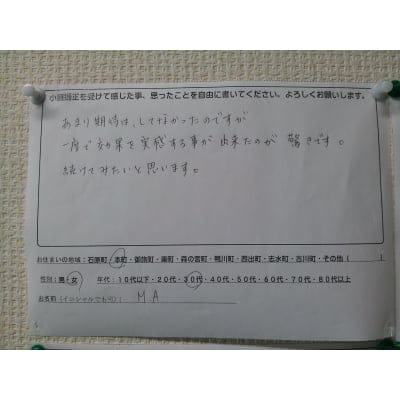 小顔矯正を受けて感じた事、思ったことを自由に書いてください。よろしくお願いします。
あまり期待は、してなかったのですが
一度で効果を実感する事が出来たのが 驚きです。
続けてみたいと思います。
お住まいの地域：石原町・本町・御旅町・東町・森の宮町・鴨川町・西出町・志水町・古川町・その他（　　）
性別：男・女　年代：10代以下・20代・30代・40代・50代・60代・70代・80代以上
お名前（イニシャルでも可）： M.A